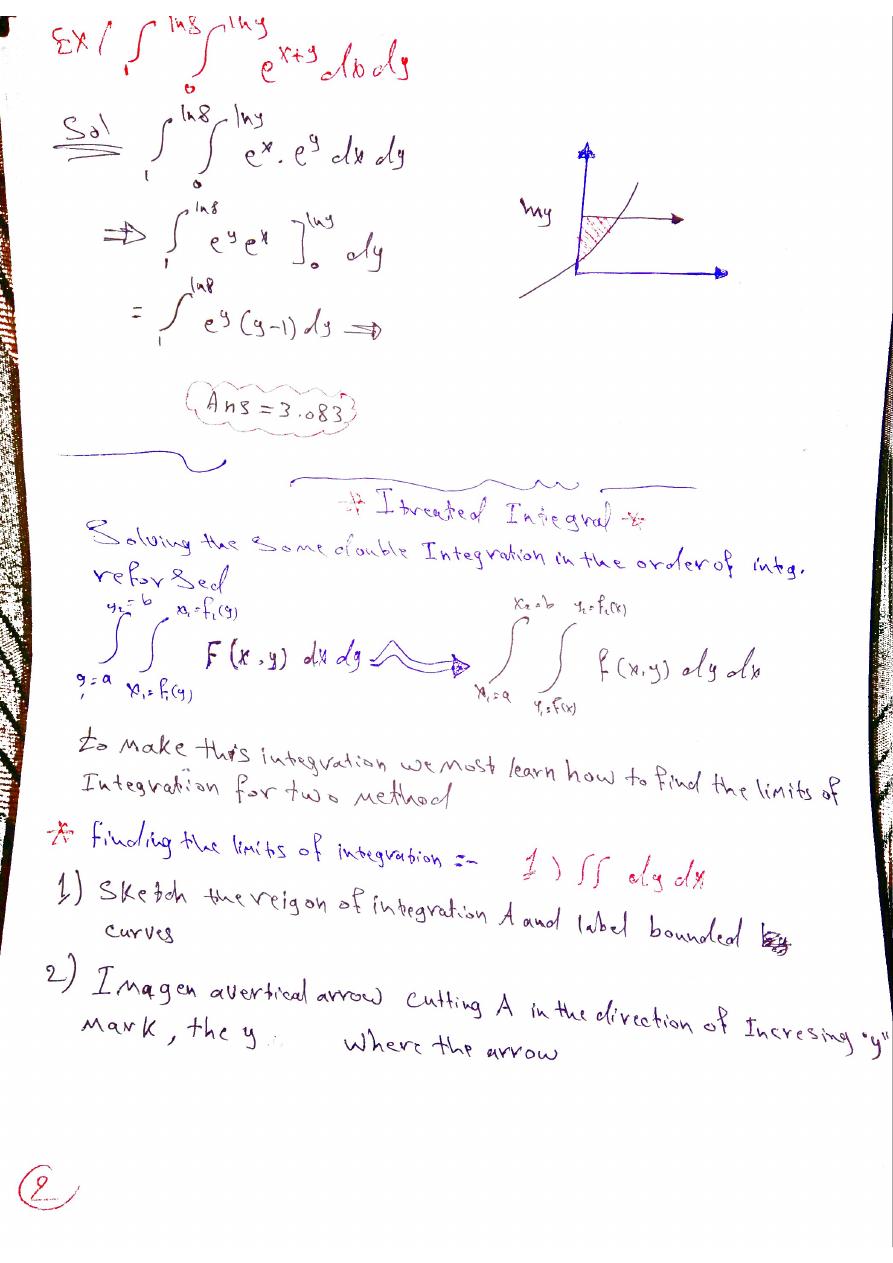 Ex/ ∫₁^{ln8} ∫₀^{lny} e^{x+y} dx dy
Sol ∫₁^{ln8} ∫₀^{lny} e^x . e^y dx dy
⇒ ∫₁^{ln8} e^y e^x ]₀^{lny} dy
lny
= ∫₁^{ln8} e^y (y-1) dy ⇒
Ans = 3.083
* Itreated Integral *
Solving the Some double Integration in the order of intg.
reforsed
∫_{y₁=a}^{y₂=b} ∫_{x₁=f₁(y)}^{x₁=f₂(y)} F(x,y) dx dy ⇒ ∫_{x₁=a}^{x₂=b} ∫_{y₁=f(x)}^{y₂=f₂(x)} f(x,y) dy dx
to make this integration we most learn how to find the limits of
Integration for two method
* finding the limits of integration :- 1) ∫∫ dy dx
1) Sketch the reigon of integration A and label bounded
curves
2) Imagen avertical arrow cutting A in the direction of Incresing "y"
Mark, the y where the arrow
2